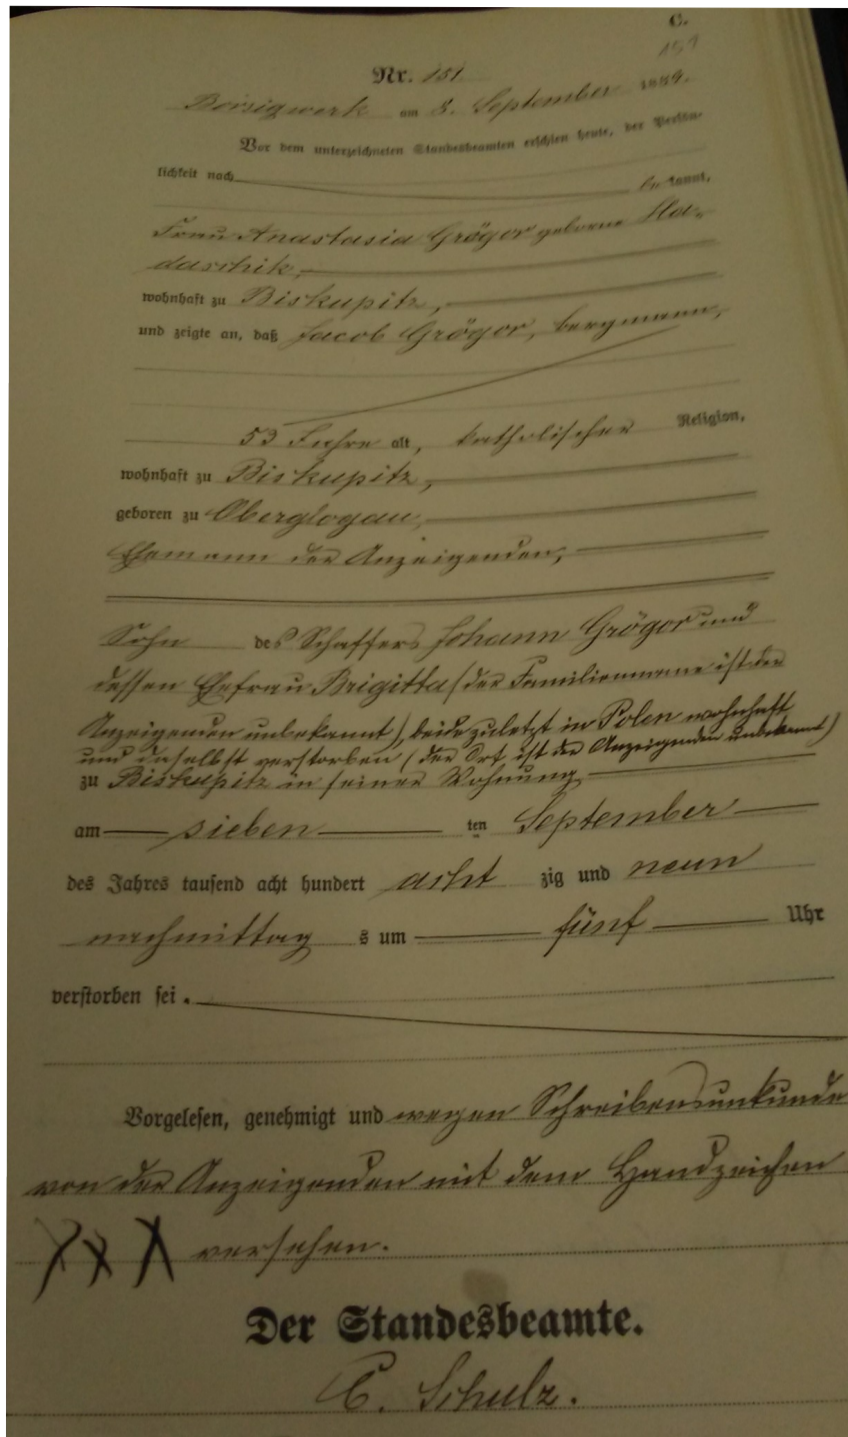 C.
151
Nr. 151
Borsigwerk am 8. September 1889.
Vor dem unterzeichneten Standesbeamten erschien heute, der Persön-
lichkeit nach
bekannt,
Frau Anastasia Grögor geborne Ha-
daschik,
wohnhaft zu Biskupitz,
und zeigte an, daß Jacob Grögor, Bergmann,
53 Jahre alt, katholischer Religion,
wohnhaft zu Biskupitz,
geboren zu Oberglogau,
Ehemann der Anzeigenden,
Sohn des Schaffers Johann Grögor und
dessen Ehefrau Brigitta (der Familienname ist der
Anzeigenden unbekannt), beide zuletzt in Polen wohnhaft
und daselbst verstorben (der Ort ist der Anzeigenden unbekannt)
zu Biskupitz in seiner Wohnung
am sieben ten September
des Jahres tausend acht hundert acht zig und neun
nachmittag s um fünf Uhr
verstorben sei.
Vorgelesen, genehmigt und wegen Schreibensunkunde
von der Anzeigenden mit dem Handzeichen
XXX versehen.
Der Standesbeamte.
C. Schulz.